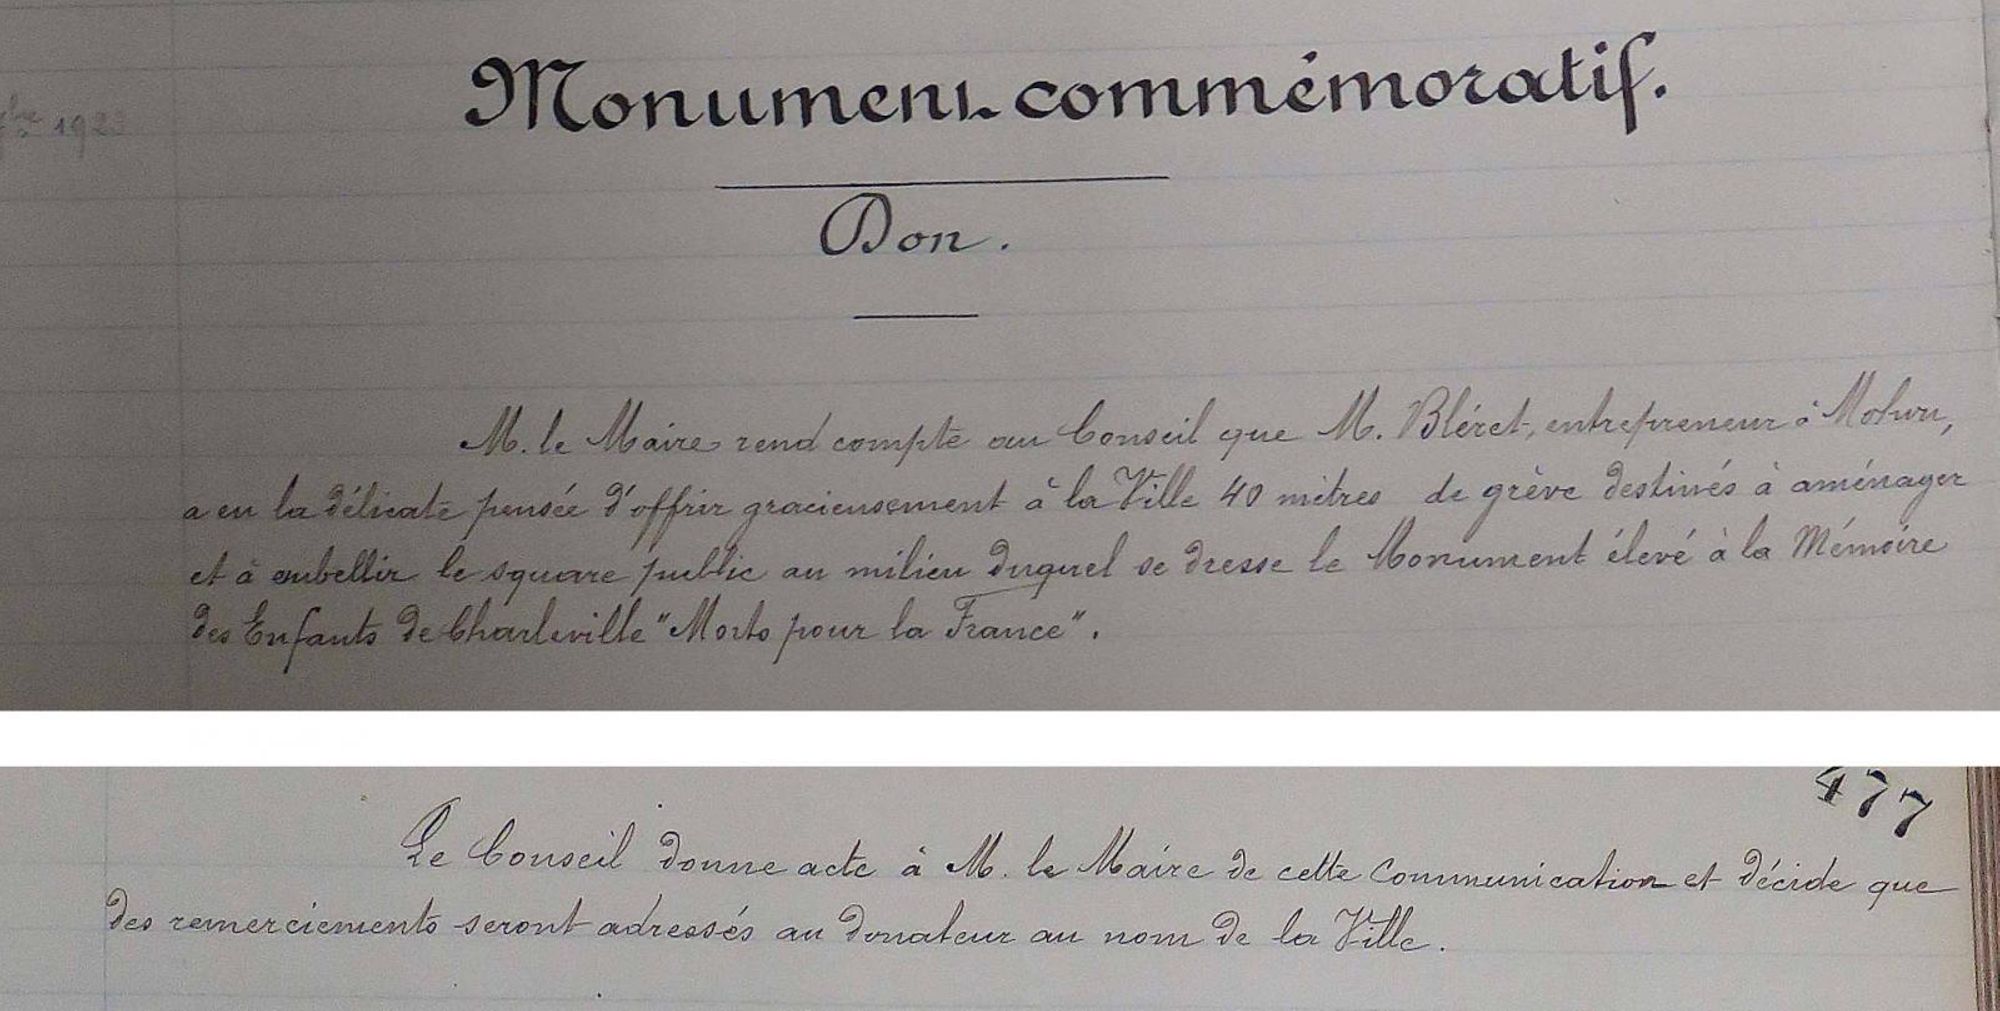 Monument commémoratif.
1923
Don.
M. le Maire rend compte au Conseil que M. Bléret, entrepreneur à Mohon,
a eu la délicate pensée d'offrir gracieusement à la Ville 40 mètres de grève destinés à aménager
et à embellir le square public au milieu duquel se dresse le Monument élevé à la Mémoire
des Enfants de Charleville "Morts pour la France".
477
Le Conseil donne acte à M. le Maire de cette Communication et décide que
des remerciements seront adressés au donateur au nom de la Ville.